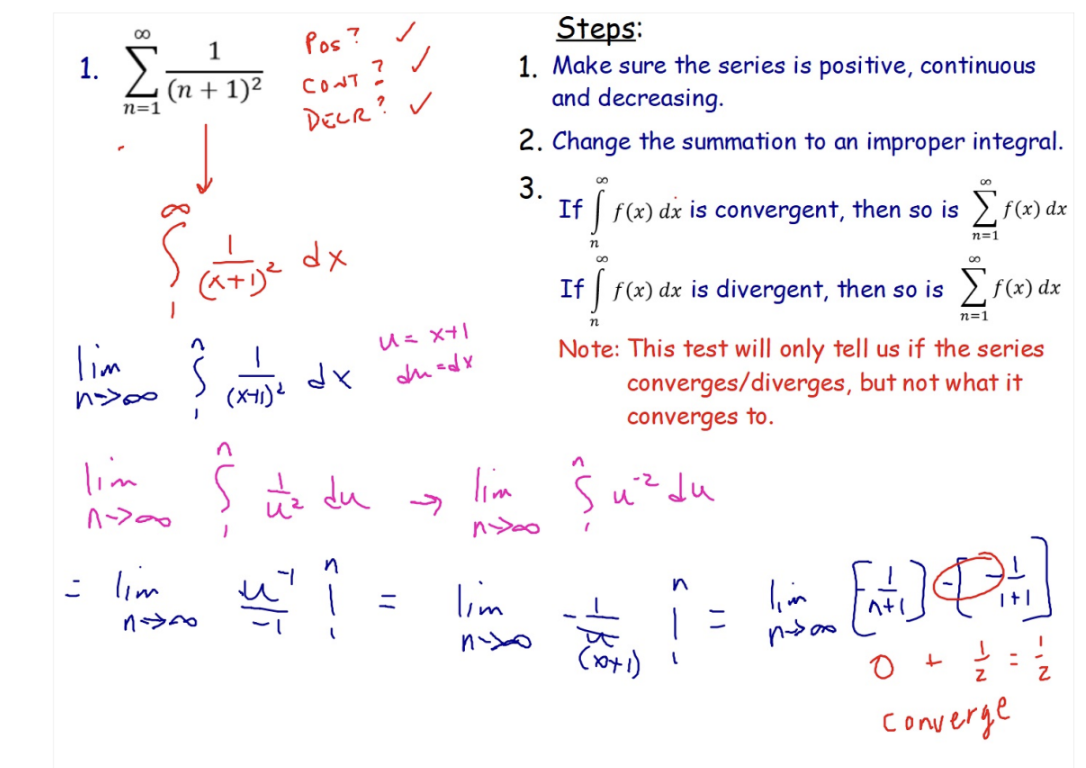 1. ∞ ∑ n=1 1/(n + 1)²
Pos? ✓
CONT? ✓
DECR? ✓
∞ ∫ 1 1/(x+1)² dx
lim n->∞ n ∫ 1 1/(x+1)² dx
u = x+1
du=dx
lim n->∞ n ∫ 1 1/u² du → lim n->∞ n ∫ 1 u⁻² du
= lim n->∞ u⁻¹/-1 | n 1 = lim n->∞ -1/u (x+1) | n 1 = lim n->∞ [-1/n+1] - [-1/1+1]
0 + 1/2 = 1/2
Converge
Steps:
1. Make sure the series is positive, continuous
and decreasing.
2. Change the summation to an improper integral.
3.
If ∞ ∫ n f(x) dx is convergent, then so is ∞ ∑ n=1 f(x) dx
If ∞ ∫ n f(x) dx is divergent, then so is ∞ ∑ n=1 f(x) dx
Note: This test will only tell us if the series
converges/diverges, but not what it
converges to.